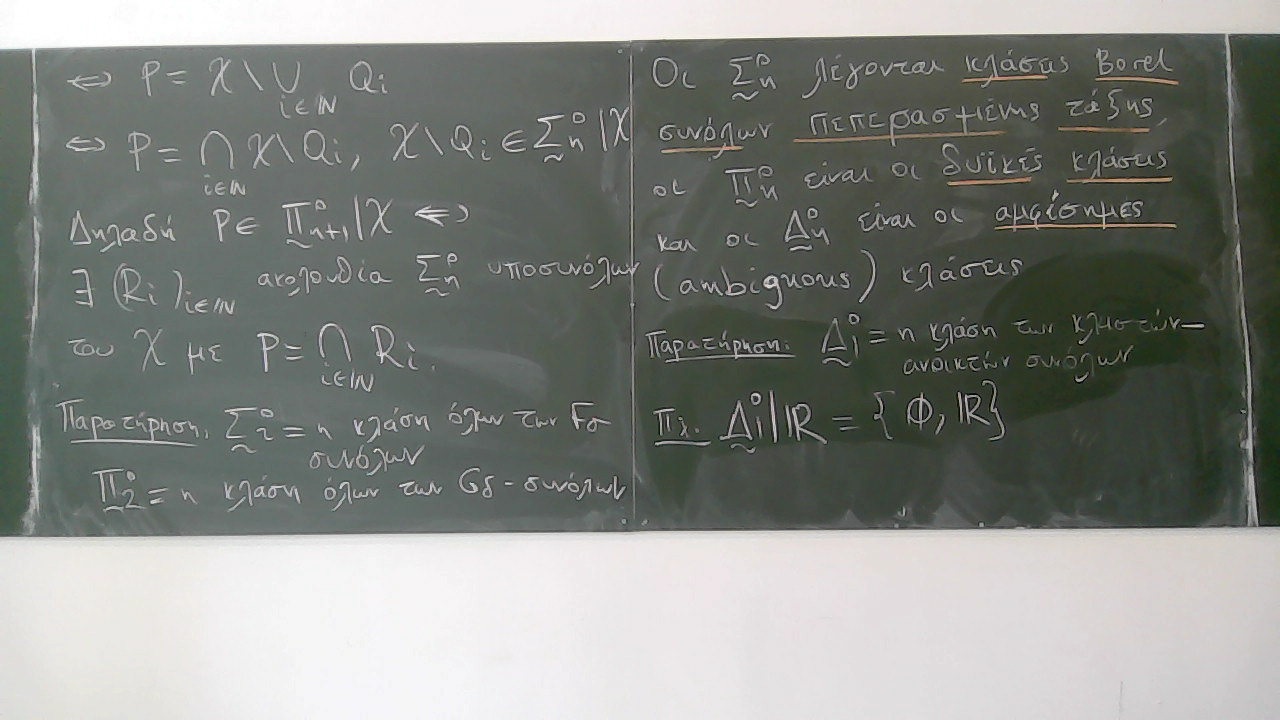 ⇔ P = 𝒳 \ ∪ Qᵢ
i∈ℕ
⇔ P = ∩ 𝒳 \ Qᵢ, 𝒳 \ Qᵢ ∈ Σ̰⁰ₙ | 𝒳
i∈ℕ
Δηλαδή P ∈ Π̰⁰ₙ₊₁ | 𝒳 ⇔
∃ (Rᵢ)ᵢ∈ℕ ακολουθία Σ̰⁰ₙ υποσυνόλων
του 𝒳 με P = ∩ Rᵢ.
i∈ℕ
Παρατήρηση. Σ̰⁰₂ = η κλάση όλων των Fσ
συνόλων
Π̰⁰₂ = η κλάση όλων των Gδ - συνόλων
Οι Σ̰⁰ₙ λέγονται κλάσεις Borel
συνόλων πεπερασμένης τάξης,
οι Π̰⁰ₙ είναι οι δυϊκές κλάσεις
και οι Δ̰⁰ₙ είναι οι αμφίσημες
(ambiguous) κλάσεις
Παρατήρηση: Δ̰⁰₁ = η κλάση των κλειστών-
ανοικτών συνόλων
Πχ. Δ̰⁰₁ | ℝ = {∅, ℝ}